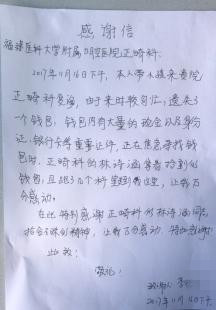 感谢信
福建医科大学附属口腔医院正畸科:
2017年11月16日下午,本人带小孩来贵院
正畸科复诊,由于来时较匆忙,遗失了
一个钱包,钱包内有大量的现金以及身份
证、银行卡等重要证件,正在焦急寻找钱
包时,正畸科的林诗涵
钱包,且跑了几个科室到我这里,让我万
分感动。
在此特别感谢正畸科林诗涵同志,
拾金不昧的精神,让我万分感动,特此感谢!
此致!
敬礼!
2017年11月16日下午